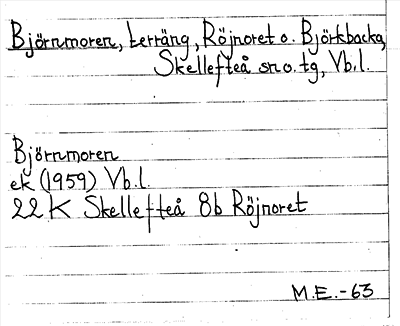 Björnmoren, terräng, Röjnoret o. Björkbacka,
Skellefteå sn o. tg, Vb.l.
Björnmoren
ek (1959) Vb.l.
22 K Skellefteå 8b Röjnoret
M.E.-63